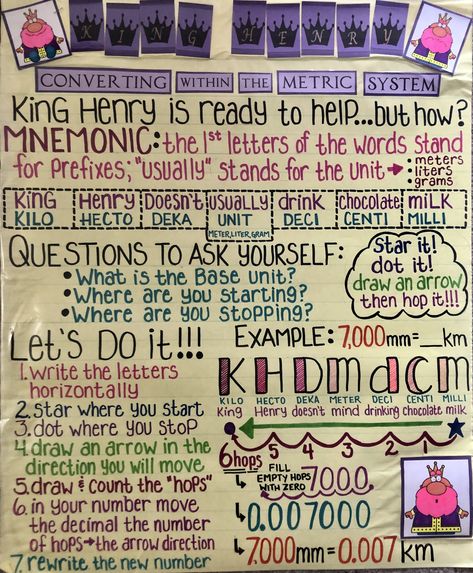 KING HENRY
CONVERTING WITHIN THE METRIC SYSTEM
King Henry is ready to help...but how?
MNEMONIC: the 1st letters of the words stand
for prefixes; "usually" stands for the unit →
• meters
• liters
• grams
King Henry Doesn't usually drink chocolate milk
KILO HECTO DEKA UNIT DECI CENTI MILLI
METER, LITER, GRAM
QUESTIONS TO ASK YOURSELF:
• What is the Base unit?
• Where are you starting?
• Where are you stopping?
Star it!
dot it!
draw an arrow
then hop it!!!
Let's Do it!!!
1. Write the letters
horizontally
2. Star where you start
3. dot where you stop
4. draw an arrow in the
direction you will move
5. draw & count the "hops"
6. in your number move
the decimal the number
of hops → the arrow direction
7. rewrite the new number
EXAMPLE: 7,000mm=__km
K H D m d c m
KILO HECTO DEKA METER DECI CENTI MILLI
King Henry doesn't mind drinking chocolate milk
6 5 4 3 2 1
6hops
FILL
EMPTY HOPS
WITH ZERO
7000.
↳ 0.007000
↳ 7,000mm = 0.007 km